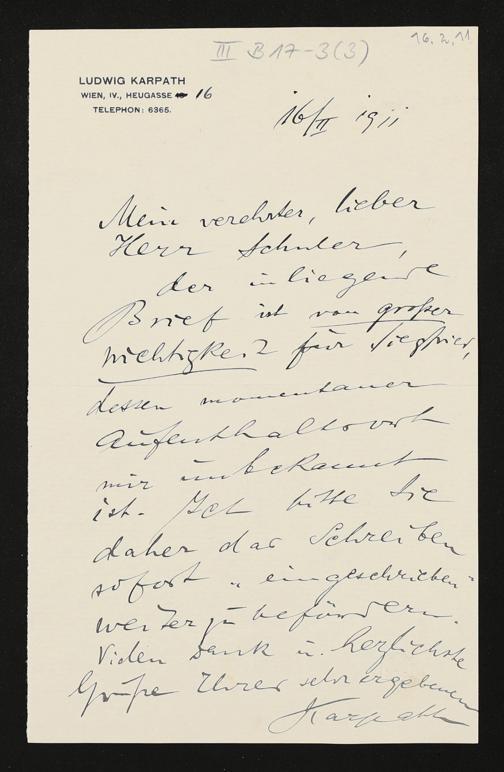 III B 17-3(3)
16.2.11
LUDWIG KARPATH
WIEN, IV., HEUGASSE 16
TELEPHON: 6365.
16/II 1911
Mein verehrter, lieber
Herr Schuler,
der inliegende
Brief ist von großer
Wichtigkeit für Siegfried,
dessen momentaner
Aufenthaltsort
mir unbekannt
ist. Ich bitte Sie
daher das Schreiben
sofort „eingeschrieben"
weiter zu befördern.
Vielen Dank u. herzlichste
Grüße Ihres sehr ergebenen
Karpath